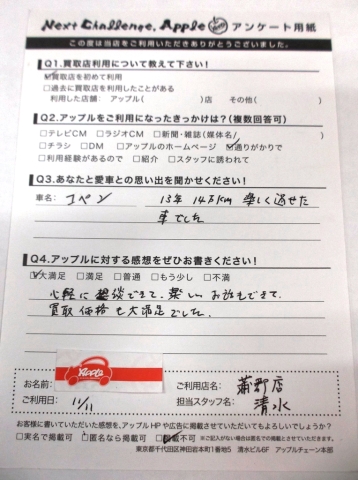 Next Challenge, Apple アンケート用紙
この度は当店をご利用いただきありがとうございました。
Q1.買取店利用について教えて下さい!
☑買取店を初めて利用
□過去に買取店を利用したことがある
利用した店舗: アップル( )店 その他( )
Q2.アップルをご利用になったきっかけは?(複数回答可)
□テレビCM □ラジオCM □新聞・雑誌(媒体名/ )
□チラシ □DM □アップルのホームページ ☑通りがかりで
□利用経験があるので □紹介 □スタッフに誘われて
Q3.あなたと愛車との思い出を聞かせください!
車名: コペン 13年 14万km 楽しく過せた
車でした
Q4.アップルに対する感想をぜひお書きください!
☑大満足 □満足 □普通 □もう少し □不満
心軽に 談できて、楽しい お話もできて、
買取価格も大満足でした。
Apple
お名前: ご利用店名: 蒲郡店
ご利用日: 11/11 担当スタッフ名: 清水
お客様に書いていただいた感想を、アップルHPや広告に掲載させていただいてもよろしいでしょうか?
□実名で掲載可 □匿名なら掲載可 ☑掲載不可 ※ご記入がない場合は匿名での掲載とさせていただきます。
東京都千代田区神田岩本町1番地5 清水ビル6F アップルチェーン本部